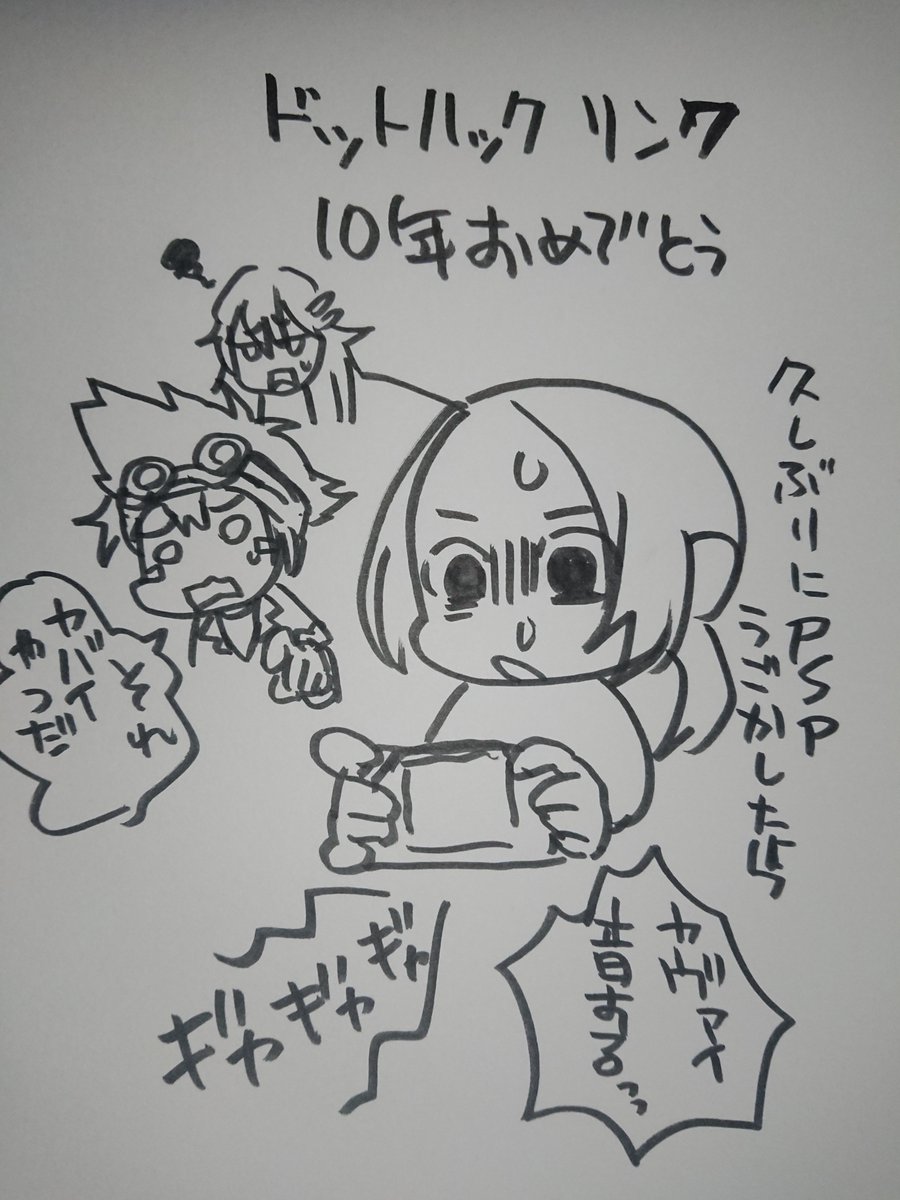 ドットハック リンク
10年おめでとう
久しぶりにPSP
うごかしたら
それ
ヤバイ
やつだ
カヴァイ
音するっっ
ギャギャギャ